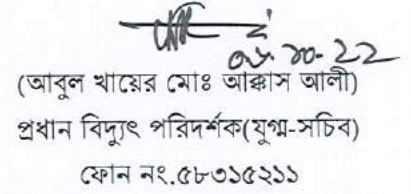 ০৫. ১০-২২
(আবুল খায়ের মোঃ আক্কাস আলী)
প্রধান বিদ্যুৎ পরিদর্শক(যুগ্ম-সচিব)
ফোন নং.৫৮৩১৫২১১